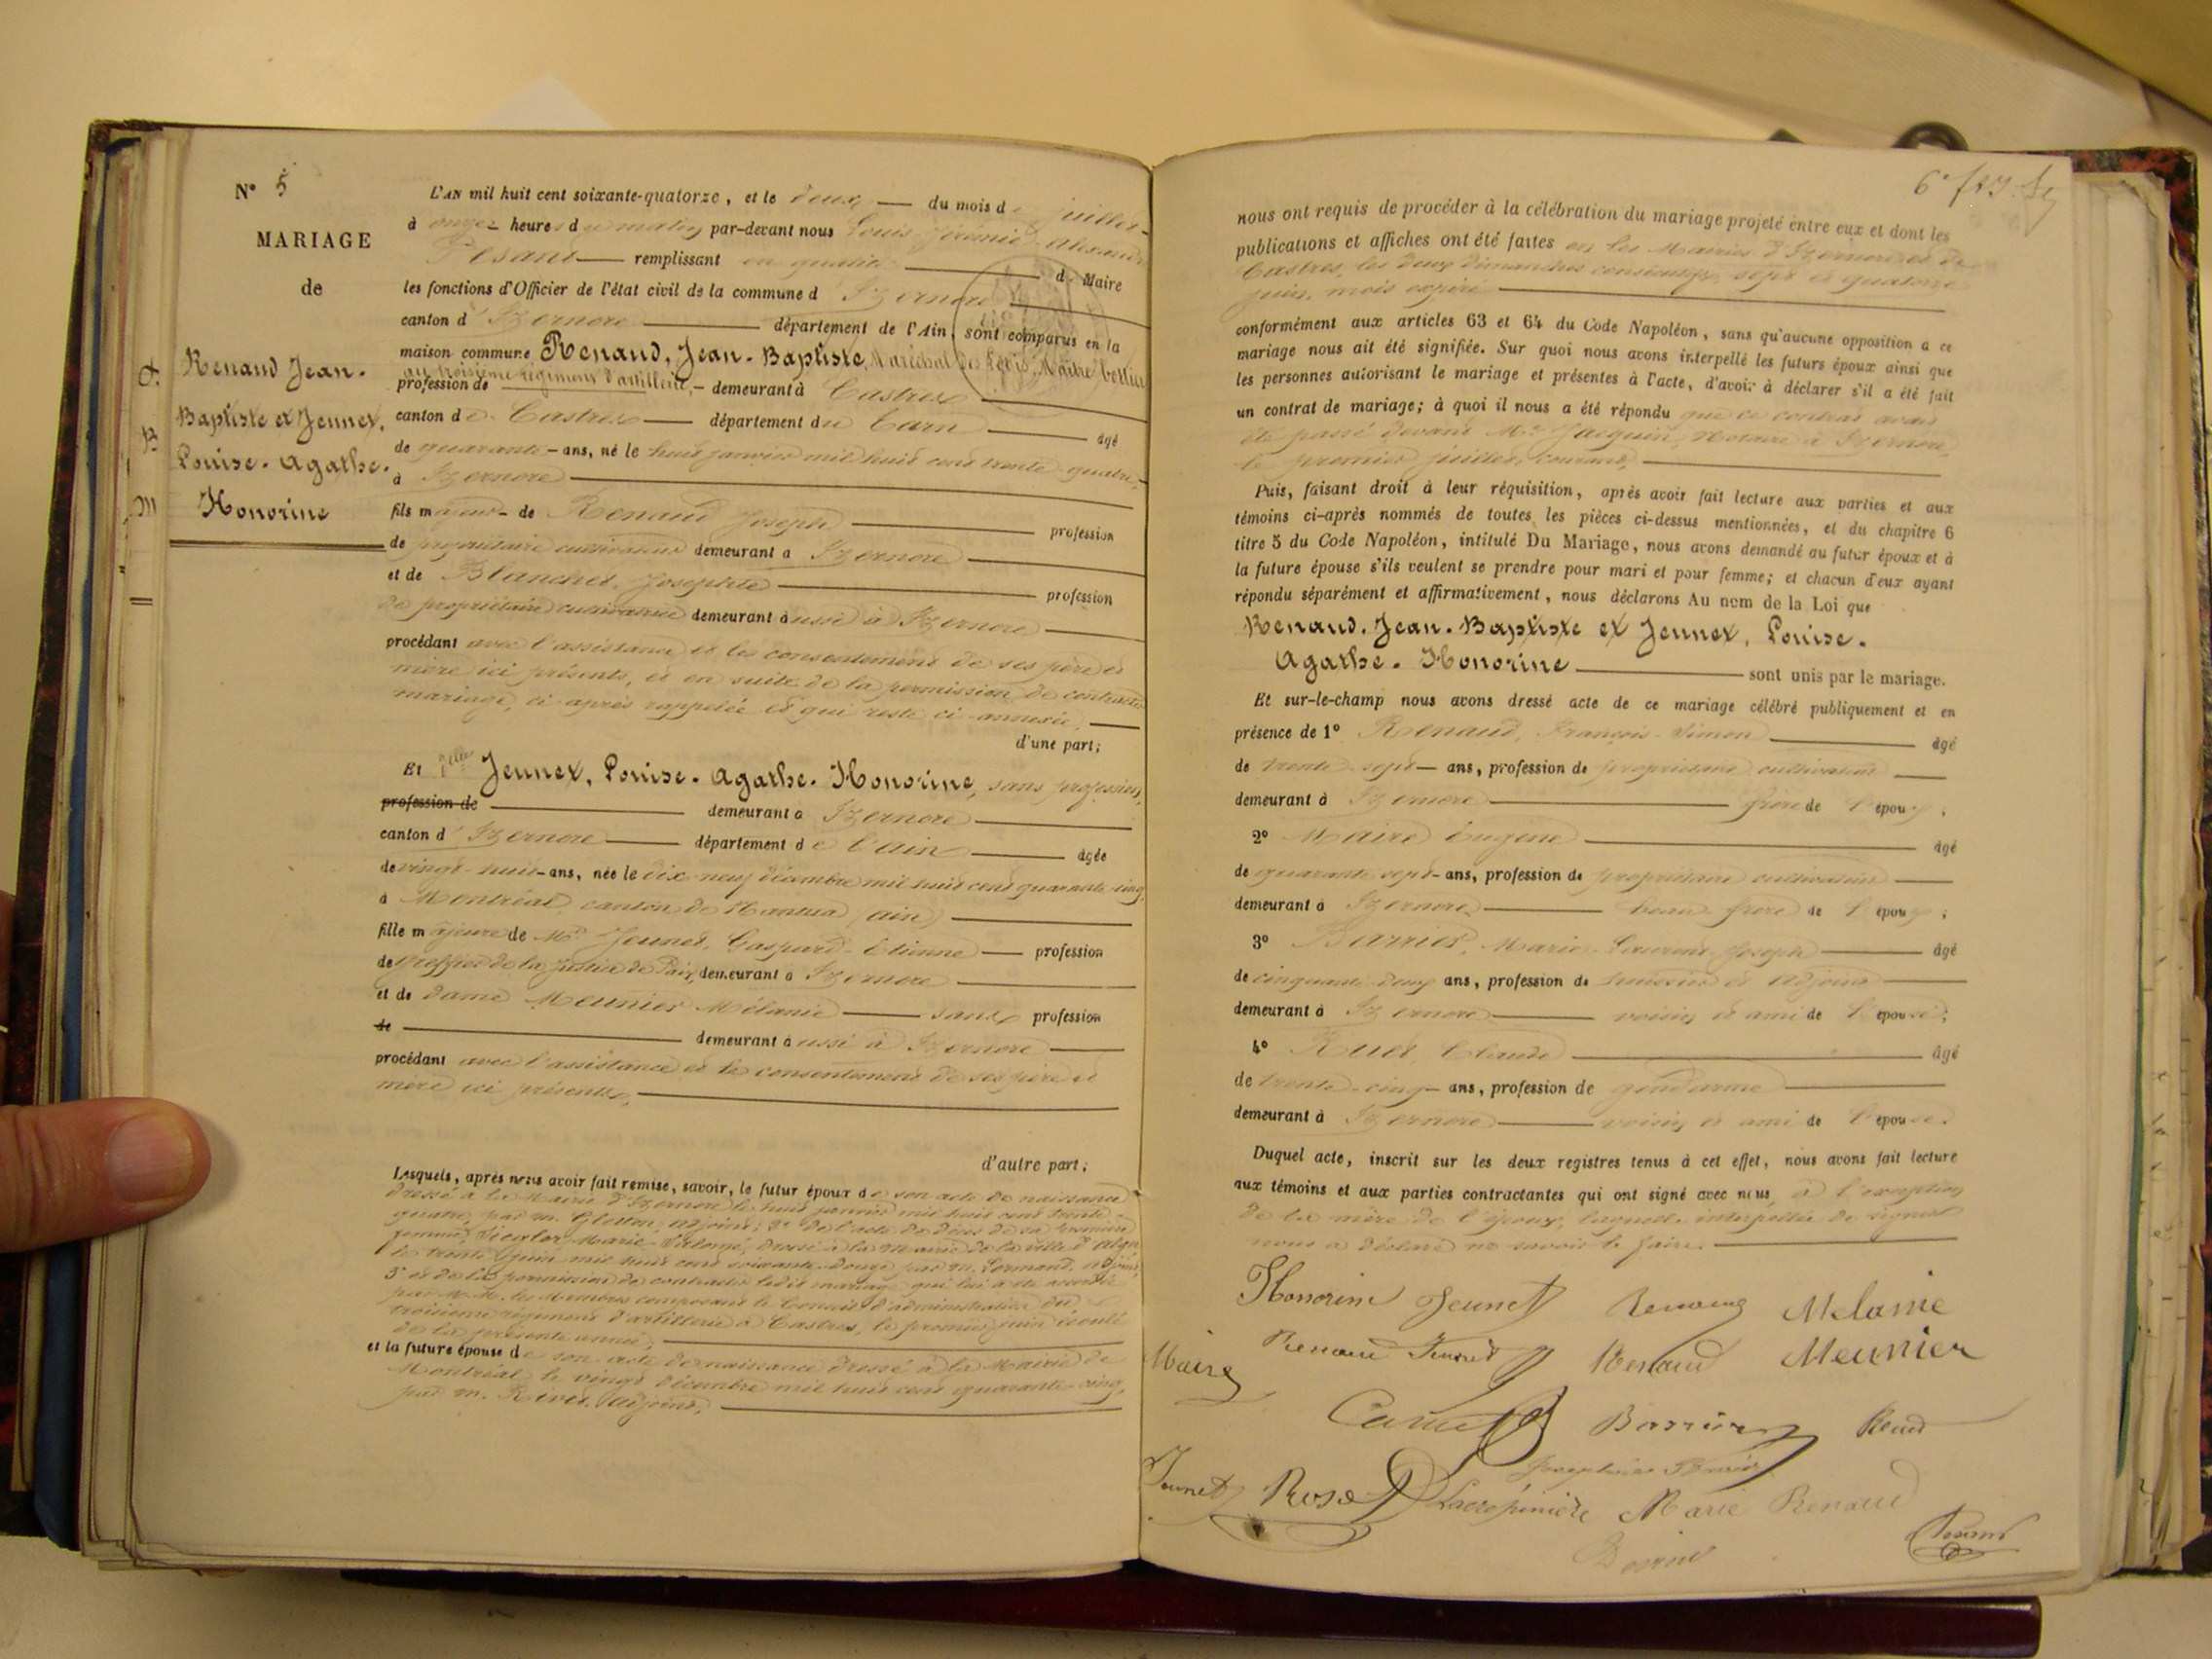 N° 5
MARIAGE
de
Renaud Jean-
Baptiste et Jeunet,
Louise-Agathe-
Honorine
L'AN mil huit cent soixante-quatorze, et le deux — du mois de juillet
à onze heures du matin par-devant nous Louis
remplissant en qualité de Maire
les fonctions d'Officier de l'état civil de la commune d'Izernore
canton d'Izernore département de l'Ain, sont comparus en la
maison commune Renaud, Jean-Baptiste, Maréchal des Logis, Maitre bottier
au troisième régiment d'artillerie,
profession de — demeurant à Castres
canton de Castres département du Tarn âgé
de quarante ans, né le huit janvier mil huit cent trente quatre,
à Izernore
fils majeur de Renaud Joseph profession
de propriétaire cultivateur demeurant à Izernore
et de Blanchet, Josephte profession
de propriétaire cultivatrice demeurant aussi à Izernore
procédant avec l'assistance et le consentement de ses père et
mère ici présents, et en suite de la permission de contracter
mariage, ci-après rappelée et qui reste ci-annexée,
d'une part;
Et Delle Jeunet, Louise-Agathe-Honorine, sans profession,
profession de demeurant à Izernore
canton d'Izernore département de l'Ain âgée
de vingt-huit ans, née le dix-neuf décembre mil huit cent quarante-cinq,
à Montréal canton de Nantua (Ain)
fille majeure de Mr Jeunet, Gaspard-Etienne profession
de greffier de la Justice de Paix, demeurant à Izernore
et de dame Meunier Mélanie sans profession
de demeurant aussi à Izernore
procédant avec l'assistance et le consentement de ses père et
mère ici présents,
d'autre part;
Lesquels, après nous avoir fait remise, savoir, le futur époux de son acte de naissance
dressé à la Mairie d'Izernore le huit janvier mil huit cent trente-
quatre, par m. adjoint; 2° de l'acte de décès de sa première
femme, Marie dressé à la Mairie de la ville d'Alger
le trente juin mil huit cent soixante-douze, par m. adjoint,
3° et de la permission de contracter ledit mariage qui lui a été accordée
par M.M. les Membres composant le Conseil d'administration du
troisième régiment d'artillerie à Castres, le premier juin écoulé
de la présente année,
et la future épouse de son acte de naissance dressé à la Mairie de
Montréal, le vingt décembre mil huit cent quarante-cinq,
par m. adjoint,
nous ont requis de procéder à la célébration du mariage projeté entre eux et dont les
publications et affiches ont été faites en les Mairies d'Izernore et de
Castres, les deux dimanches consécutifs, sept et quatorze
juin, mois expiré
conformément aux articles 63 et 64 du Code Napoléon, sans qu'aucune opposition a ce
mariage nous ait été signifiée. Sur quoi nous avons interpellé les futurs époux ainsi que
les personnes autorisant le mariage et présentes à l'acte, d'avoir à déclarer s'il a été fait
un contrat de mariage; à quoi il nous a été répondu que ce contrat avait
été passé devant Me Jacquin, Notaire à Izernore,
le premier juillet, courant,
Puis, faisant droit à leur réquisition, après avoir fait lecture aux parties et aux
témoins ci-après nommés de toutes les pièces ci-dessus mentionnées, et du chapitre 6
titre 5 du Code Napoléon, intitulé Du Mariage, nous avons demandé au futur époux et à
la future épouse s'ils veulent se prendre pour mari et pour femme; et chacun d'eux ayant
répondu séparément et affirmativement, nous déclarons Au nom de la Loi que
Renaud, Jean-Baptiste et Jeunet, Louise-
Agathe-Honorine sont unis par le mariage.
Et sur-le-champ nous avons dressé acte de ce mariage célébré publiquement et en
présence de 1° Renaud, François-Simon âgé
de trente-sept ans, profession de propriétaire cultivateur
demeurant à Izernore frère de l'époux;
2° Maire Eugène âgé
de quarante sept ans, profession de propriétaire cultivateur
demeurant à Izernore beau-frère de l'époux;
3° Marie-Laurent-Joseph âgé
de cinquante deux ans, profession de huissier et Adjoint
demeurant à Izernore voisin et ami de l'épouse;
4° Ruet, Claude âgé
de trente-cinq ans, profession de gendarme
demeurant à Izernore voisin et ami de l'épouse.
Duquel acte, inscrit sur les deux registres tenus à cet effet, nous avons fait lecture
aux témoins et aux parties contractantes qui ont signé avec nous, à l'exception
de la mère de l'époux, laquelle interpellée de signer
nous a déclaré ne savoir le faire.
Honorine Jeunet Renaud Melanie
Maire Renaud Jeunet Renaud Meunier
Jeunet Rose Lacrépinière Marie Renaud